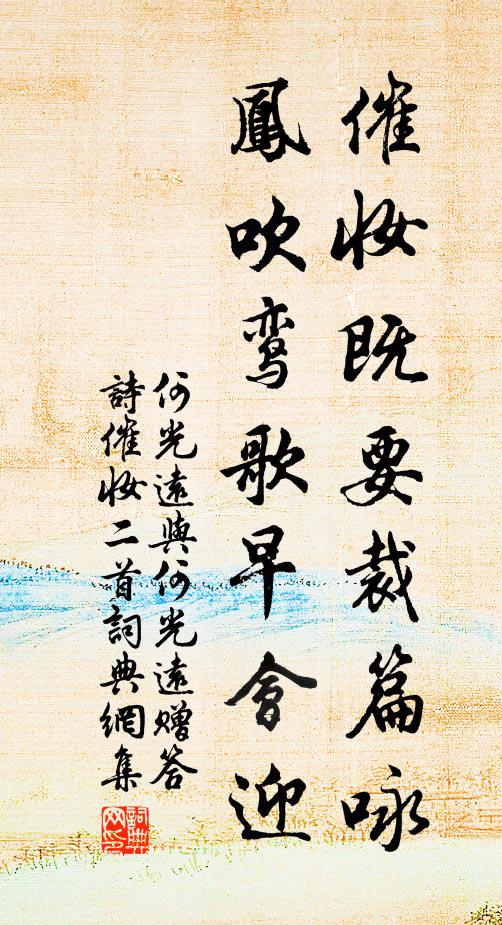 催妆既要裁篇咏
鳳吹鸾歌早會迎
何光遠與何光遠贈答
詩催妝二首詞典網集
詞典
网印